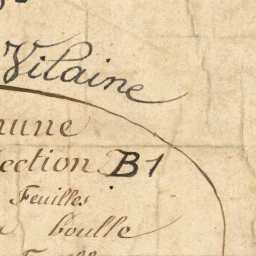 Vilaine
mune
ection B1
Feuilles
boulle